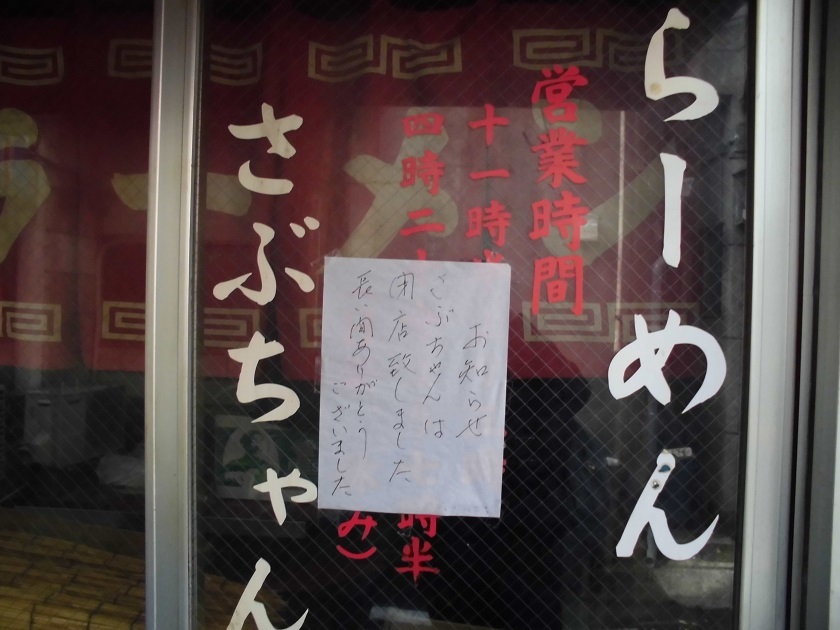 らーめん
営業時間
十一時
四時二
時半
み）
さぶちゃん
お知らせ
さぶちゃんは
閉店致しました
長い間ありがとう
ございました
ラーメン